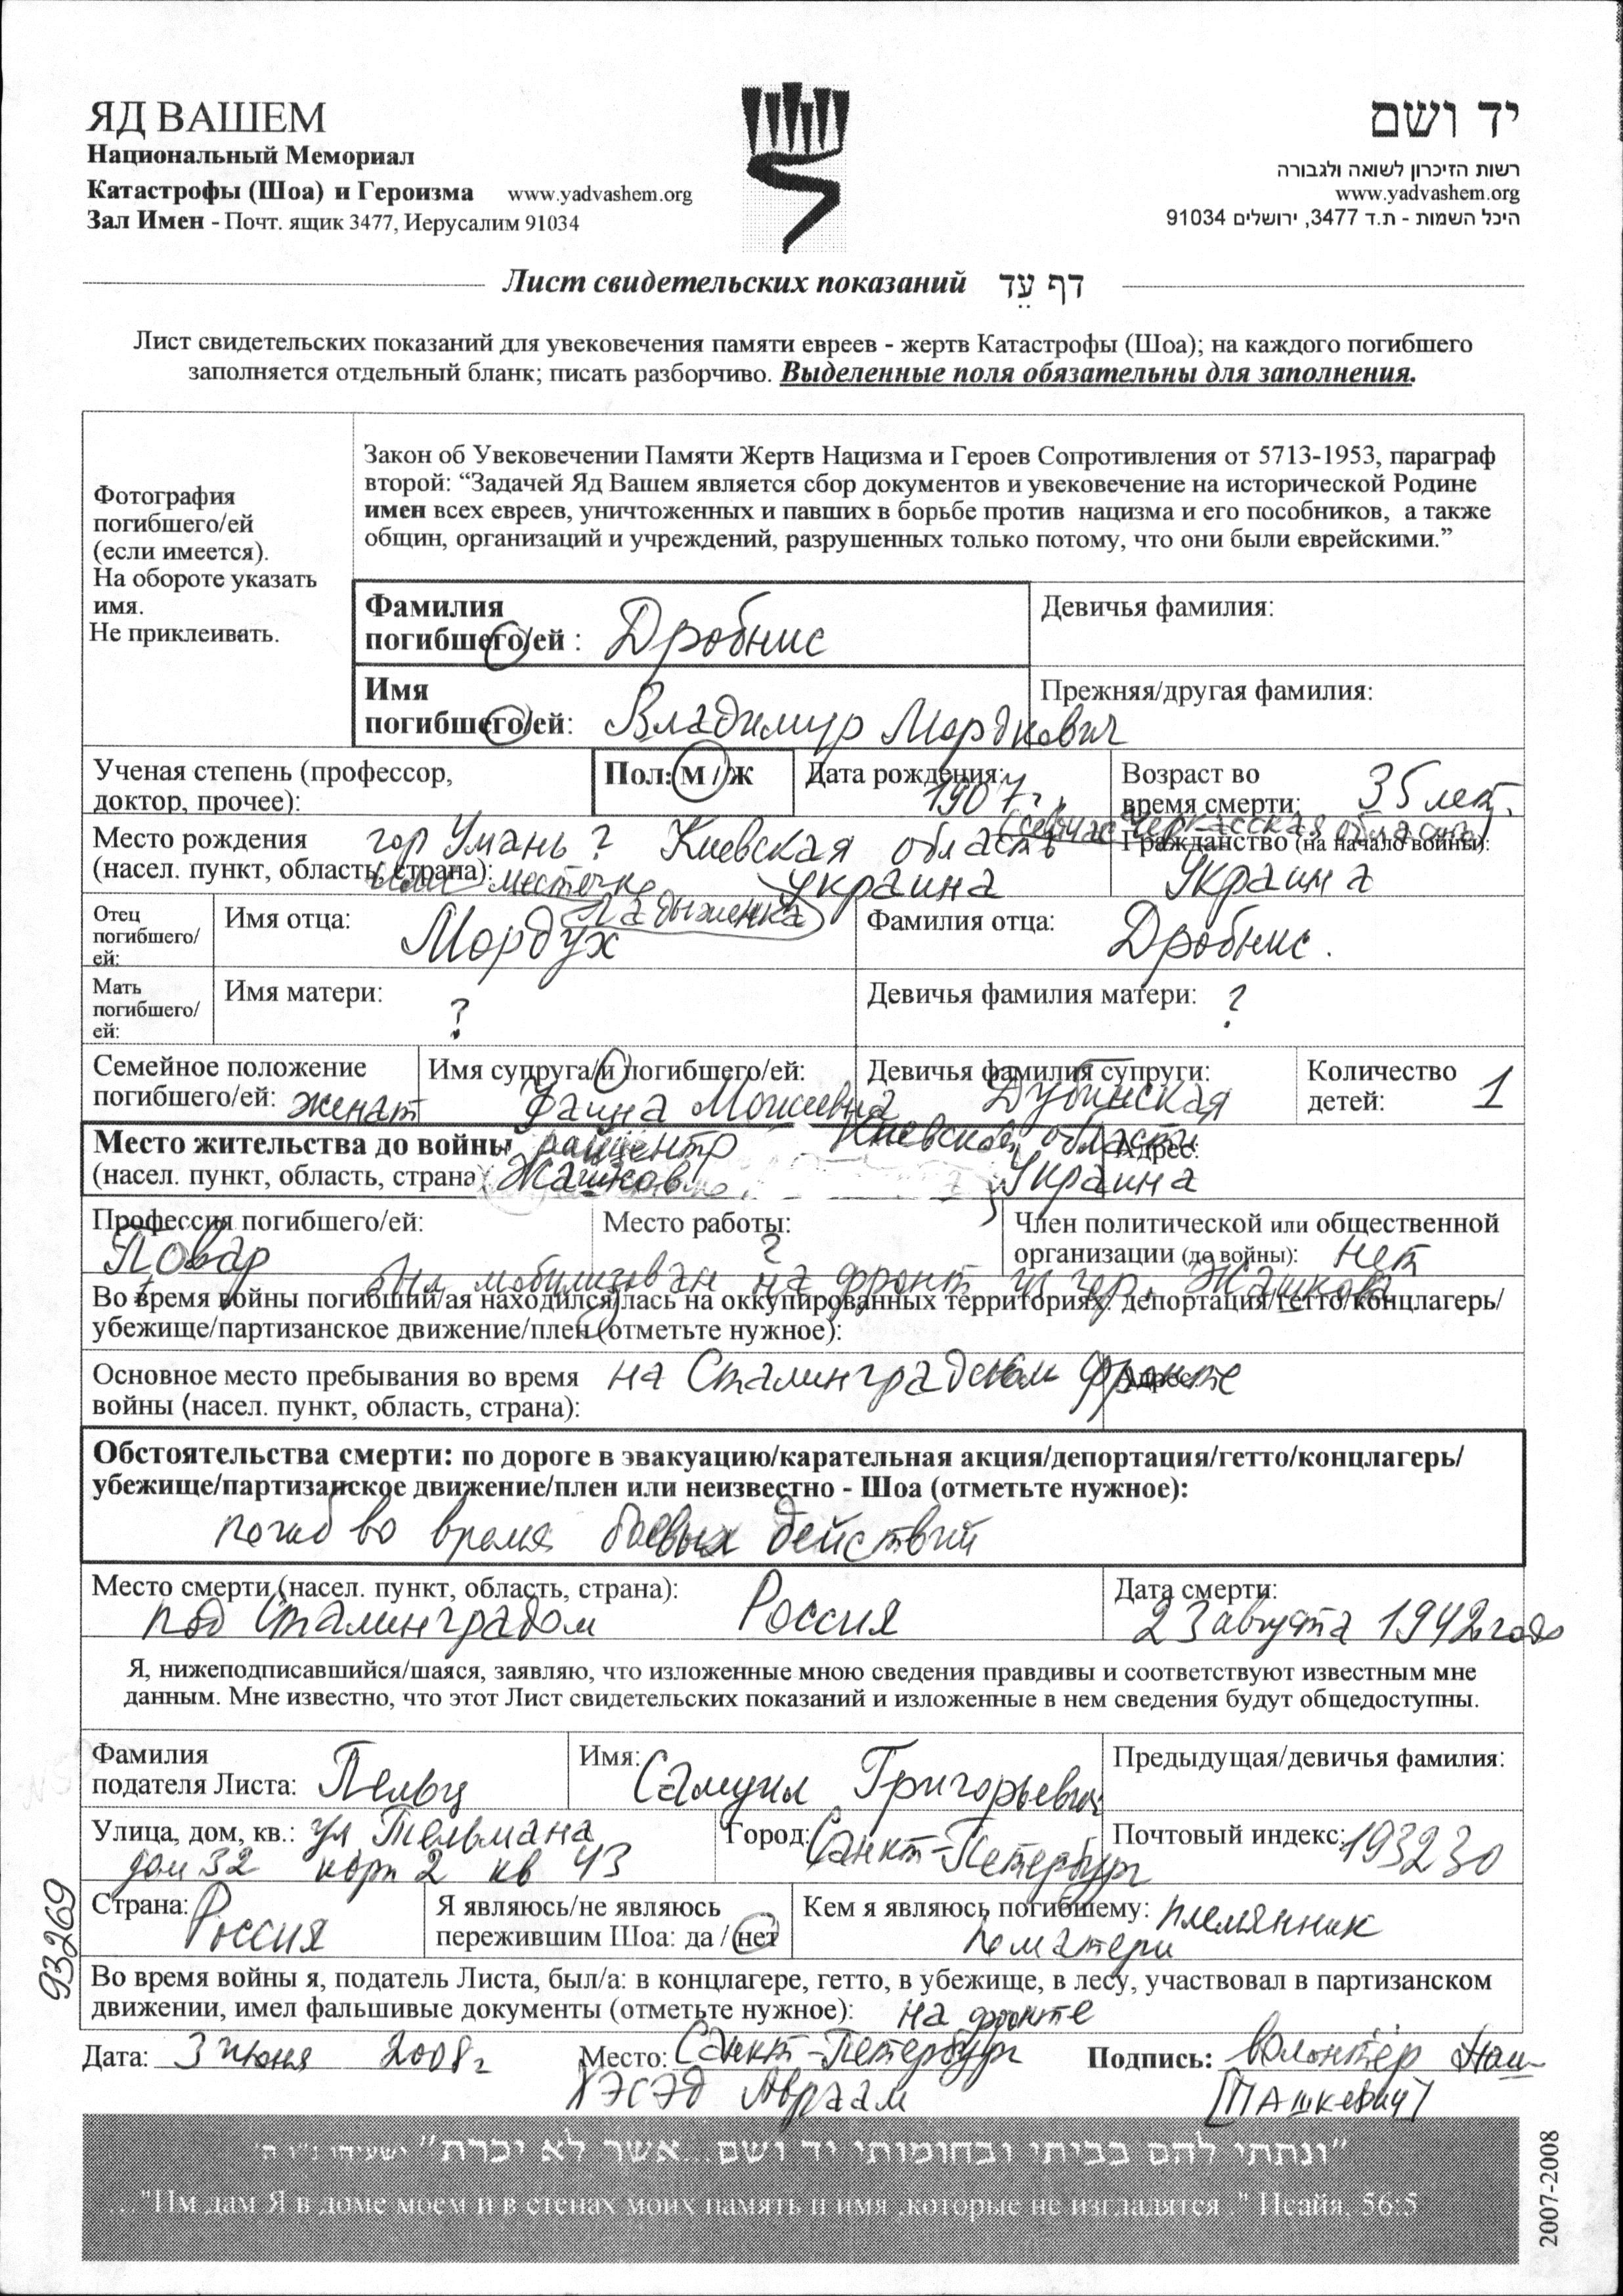 ЯД ВАШЕМ
Национальный Мемориал
Катастрофы (Шоа) и Героизма www.yadvashem.org
Зал Имен - Почт. ящик 3477, Иерусалим 91034
יד ושם
רשות הזיכרון לשואה ולגבורה
www.yadvashem.org
היכל השמות - ת.ד 3477, ירושלים 91034
Лист свидетельских показаний דף עֵד
Лист свидетельских показаний для увековечения памяти евреев - жертв Катастрофы (Шоа); на каждого погибшего
заполняется отдельный бланк; писать разборчиво. Выделенные поля обязательны для заполнения.
Фотография
погибшего/ей
(если имеется).
На обороте указать
имя.
Не приклеивать.
Закон об Увековечении Памяти Жертв Нацизма и Героев Сопротивления от 5713-1953, параграф
второй: “Задачей Яд Вашем является сбор документов и увековечение на исторической Родине
имен всех евреев, уничтоженных и павших в борьбе против нацизма и его пособников, а также
общин, организаций и учреждений, разрушенных только потому, что они были еврейскими.”
Фамилия
погибшего/ей : Дробнис
Девичья фамилия:
Имя
погибшего/ей: Владимир Мордкович
Прежняя/другая фамилия:
Ученая степень (профессор,
доктор, прочее):
Пол: М / Ж
Дата рождения: 1907 г.
Возраст во
время смерти: 35 лет.
Место рождения гор Умань ? Киевская область (сейчас Черкасская область)
(насел. пункт, область, страна): или местечко Ладыженка Украина
Гражданство (на начало войны):
Украина
Отец
погибшего/
ей:
Имя отца: Мордух
Фамилия отца: Дробнис.
Мать
погибшего/
ей:
Имя матери: ?
Девичья фамилия матери: ?
Семейное положение
погибшего/ей: женат
Имя супруга/и погибшего/ей:
Фаина Моисеевна
Девичья фамилия супруги:
Дубинская
Количество
детей: 1
Место жительства до войны райцентр Киевской области
(насел. пункт, область, страна) Жашков Украина
Адрес:
Профессия погибшего/ей:
Повар
Место работы:
?
Член политической или общественной
организации (до войны): нет
был мобилизован на фронт из гор. Жашкова
Во время войны погибший/ая находился/лась на оккупированных территориях: депортация/гетто/концлагерь/
убежище/партизанское движение/плен (отметьте нужное):
Основное место пребывания во время на Сталинградском фронте
войны (насел. пункт, область, страна):
Адрес:
Обстоятельства смерти: по дороге в эвакуацию/карательная акция/депортация/гетто/концлагерь/
убежище/партизанское движение/плен или неизвестно - Шоа (отметьте нужное):
погиб во время боевых действий
Место смерти (насел. пункт, область, страна):
под Сталинградом Россия
Дата смерти:
23 августа 1942 года
Я, нижеподписавшийся/шаяся, заявляю, что изложенные мною сведения правдивы и соответствуют известным мне
данным. Мне известно, что этот Лист свидетельских показаний и изложенные в нем сведения будут общедоступны.
Фамилия
подателя Листа: Пельц
Имя: Самуил Григорьевич
Предыдущая/девичья фамилия:
Улица, дом, кв.: ул Тельмана
дом 32 корп 2 кв 43
Город: Санкт-Петербург
Почтовый индекс: 193230
Страна: Россия
Я являюсь/не являюсь
пережившим Шоа: да / нет
Кем я являюсь погибшему: племянник
по матери
Во время войны я, податель Листа, был/а: в концлагере, гетто, в убежище, в лесу, участвовал в партизанском
движении, имел фальшивые документы (отметьте нужное): на фронте
Дата: 3 июня 2008 г Место: Санкт-Петербург Подпись: волонтёр Паш
ХЭСЭД Авраам [ПАшкевич]
"ונתתי להם בביתי ובחומותי יד ושם...אשר לא יכרת" ישעיהו נ"ו ה'
..."Им дам Я в доме моем и в стенах моих память и имя ,которые не изгладятся ." Исайя, 56:5
93269
2007-2008